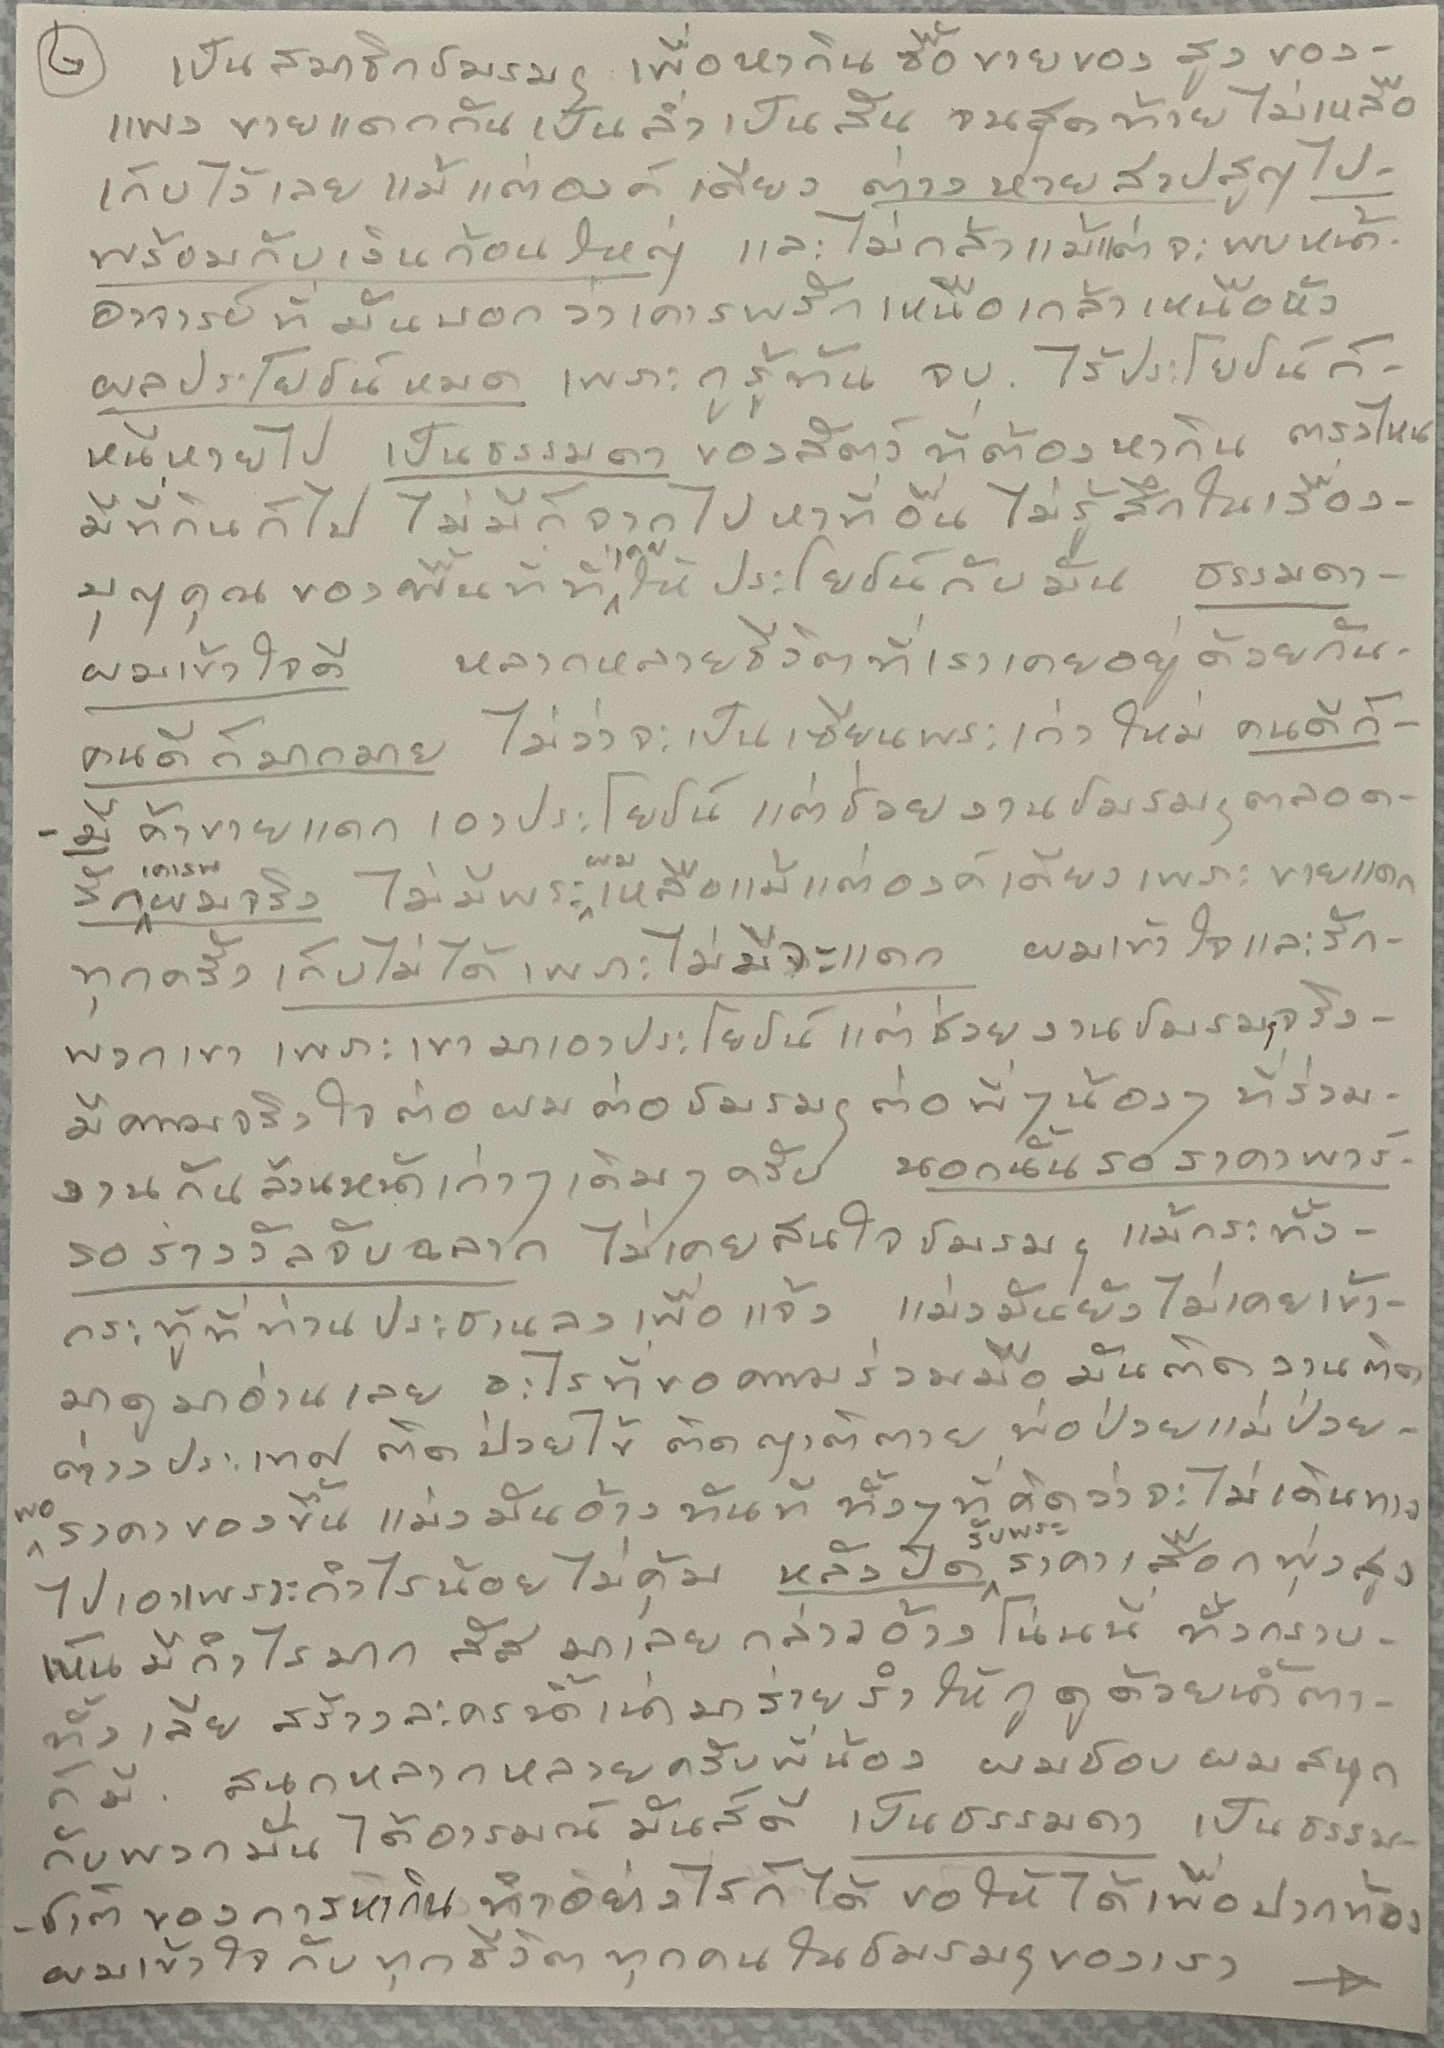 ๒
เป็นสมาชิกชมรมฯ เพื่อหากิน ซื้อขายของ สูง ของ-
แพง ขายแดกกันเป็นล่ำเป็นสัน จนสุดท้ายไม่เหลือ
เก็บไว้เลย แม้แต่องค์เดียว ต่างหายสาปสูญไป-
พร้อมกับเงินก้อนใหญ่ และไม่กล้าแม้แต่จะพบหน้า
อาจารย์ที่มันบอกว่าเคารพรักเหนือเกล้าเหนือหัว
ผลประโยชน์หมด เพราะกูรู้ทัน จบ. ไร้ประโยชน์ก็-
หนีหายไป เป็นธรรมดา ของสัตว์ที่ต้องหากิน ตรงไหน
มีที่กินก็ไป ไม่มีก็จากไปหาที่อื่น ไม่รู้สึกในเรื่อง-
บุญคุณของพื้นที่ที่เคยให้ประโยชน์กับมัน ธรรมดา-
ผมเข้าใจดี หลากหลายชีวิตที่เราเคยอยู่ด้วยกัน-
คนดีก็มากมาย ไม่ว่าจะเป็นเซียนพระเก่าใหม่ คนดีก็-
-มี ค้าขายแดก เอาประโยชน์ แต่ช่วยงานชมรมฯตลอด-
รักเคารพผมจริง ไม่มีพระผมเหลือแม้แต่องค์เดียวเพราะขายแดก
ทุกครั้ง เก็บไม่ได้เพราะไม่มีจะแดก ผมเข้าใจและรัก-
พวกเขา เพราะเขามาเอาประโยชน์ แต่ช่วยงานชมรมฯจริง-
มีความจริงใจต่อผมต่อชมรมฯต่อพี่ๆน้องๆ ที่ร่วม-
งานกันล้วนหน้าเก่าๆเดิมๆครับ นอกนั้นรอราคาพาร์-
รอร่างวัลจับฉลาก ไม่เคยสนใจชมรมฯ แม้กระทั่ง-
กระทู้ที่ท่านประธานลงเพื่อแจ้ง แม่งมันยังไม่เคยเข้า-
มาดูมาอ่านเลย อะไรที่ขอความร่วมมือ มันติดงานติด
ต่างประเทศ ติดป่วยไข้ ติดญาติตาย พ่อป่วยแม่ป่วย-
พอราคาของขึ้น แม่งมันอ้างทันที ทั้งๆที่คิดว่าจะไม่เดินทาง
ไปเอาเพราะกำไรน้อยไม่คุ้ม หลังปิดรับพระราคาเสือกพุ่งสูง
เห็นมีกำไรมาก สัส มาเลย กล่าวอ้างโน่นนี่ ทั้งกราบ-
ทั้งเลีย สร้างละครน้ำเน่ามาร่ายรำให้กูดูด้วยน้ำตา-
ก็มี. สนุกหลากหลายครับพี่น้อง ผมชอบผมสนุก
กับพวกมัน ได้อารมณ์มันส์ดี เป็นธรรมดา เป็นธรรม-
-ชาติของการหากิน ทำอย่างไรก็ได้ ขอให้ได้เพื่อปากท้อง
ผมเข้าใจกับทุกชีวิตทุกคนในชมรมฯของเรา →